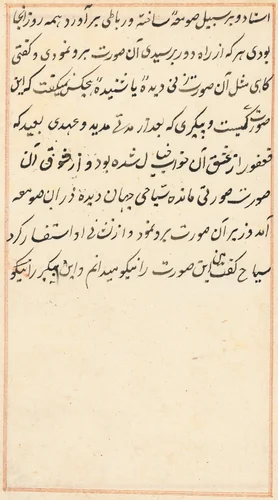 استاد و بر سبیل صومعه ساخته و رباطی بر آورد همه روز آنجا
بودی هر که از راه دور برسیدی آن صورت برو نمودی و گفتی
کاهی مثل آن صورت زنی دیده یا شنیده هیچکس نمیگفت که این
صورت کیست و پیکری که بعد از مدتی مدید و عهدی بعید که
فغفور از عشق آن خواب خیال شده بود و از شوق آن
صورت صورتی مانده سیاحی جهان دیده در ان صومعه
آمد وزیر آن صورت برو نمود و از زن از او استفسار کرد
سیاح کفت من این صورت را نیکو میدانم و این پیکر را نیکو